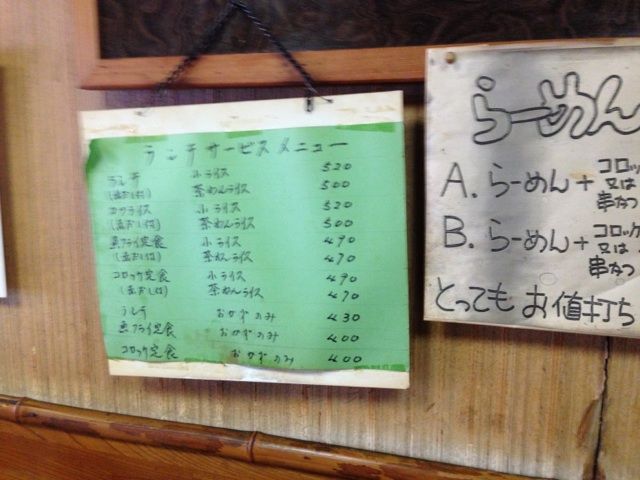 ランチサービスメニュー
ランチ 小ライス 520
(みそ汁付) 茶わんライス 500
カツライス 小ライス 520
(みそ汁付) 茶わんライス 500
魚フライ定食 小ライス 490
(みそ汁付) 茶わんライス 470
コロッケ定食 小ライス 490
(みそ汁付) 茶わんライス 470
ランチ おかずのみ 430
魚フライ定食 おかずのみ 400
コロッケ定食 おかずのみ 400
らーめん
A. らーめん + コロッ
又は
串かつ
B. らーめん + コロッケ
又は
串かつ
とっても お値打ち